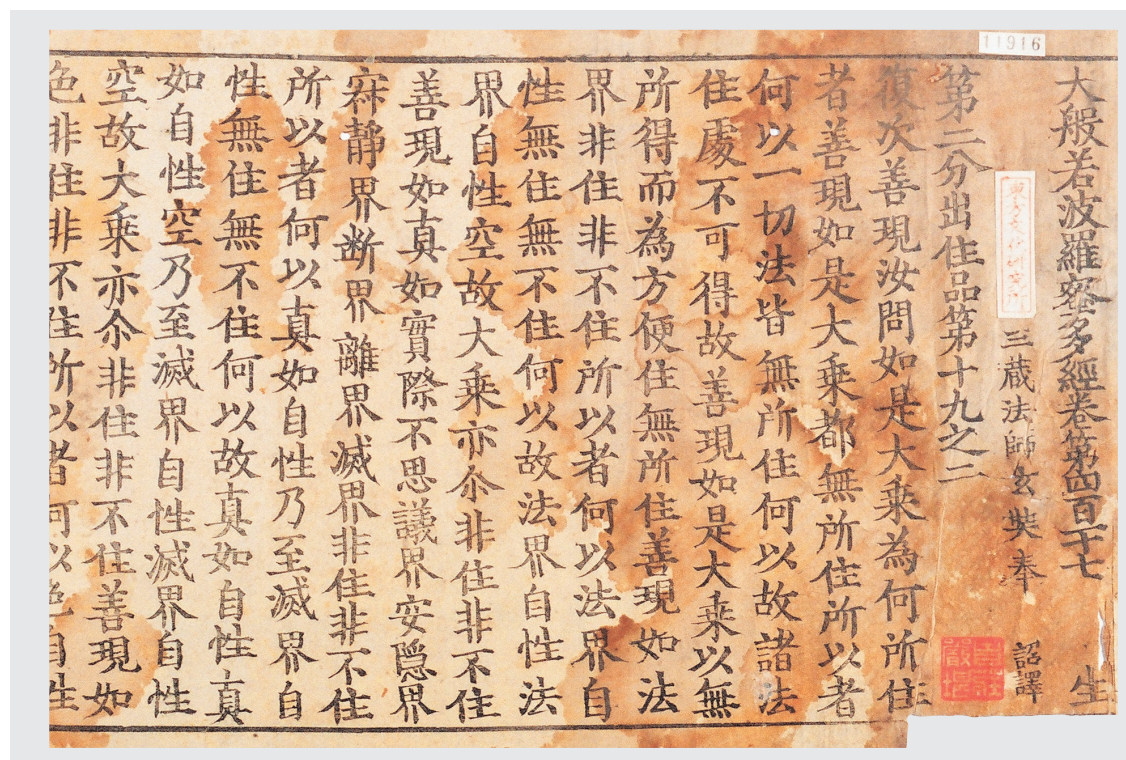 11916
大般若波羅蜜多經卷第四百一十七 生
三蔵法師玄奘奉 詔譯
第二分出住品第十九之二
復次善現汝問如是大乗為何所住
者善現如是大乗都無所住所以者
何以一切法皆無所住何以故諸法
住處不可得故善現如是大乗以無
所得而為方便住無所住善現如法
界非住非不住所以者何以法界自
性無住無不住何以故法界自性法
界自性空故大乗亦尒非住非不住
善現如真如實際不思議界安隱界
寂靜界断界離界滅界非住非不住
所以者何以真如自性乃至滅界自
性無住無不住何以故真如自性真
如自性空乃至滅界自性滅界自性
空故大乗亦尒非住非不住善現如
色非住非不住所以者何以色自性